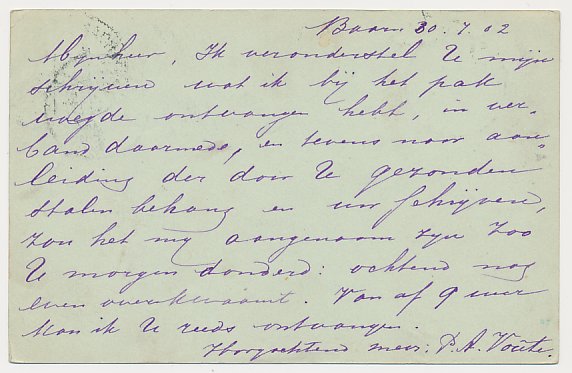 Baarn 30.7.02
Mynheer, Ik veronderstel U mijn
schryven wat ik bij het pak
voegde ontvangen hebt, in ver-
band daarmede, en tevens naar aan-
leiding der door U gezonden
stalen behang en uw schijven,
zou het my aangenaam zyn zoo
U morgen donderd: ochtend nog
even overkwaamt. Van af 9 uur
kan ik U reeds ontvangen.
Hoogachtend mevr: P. A. Voûte.